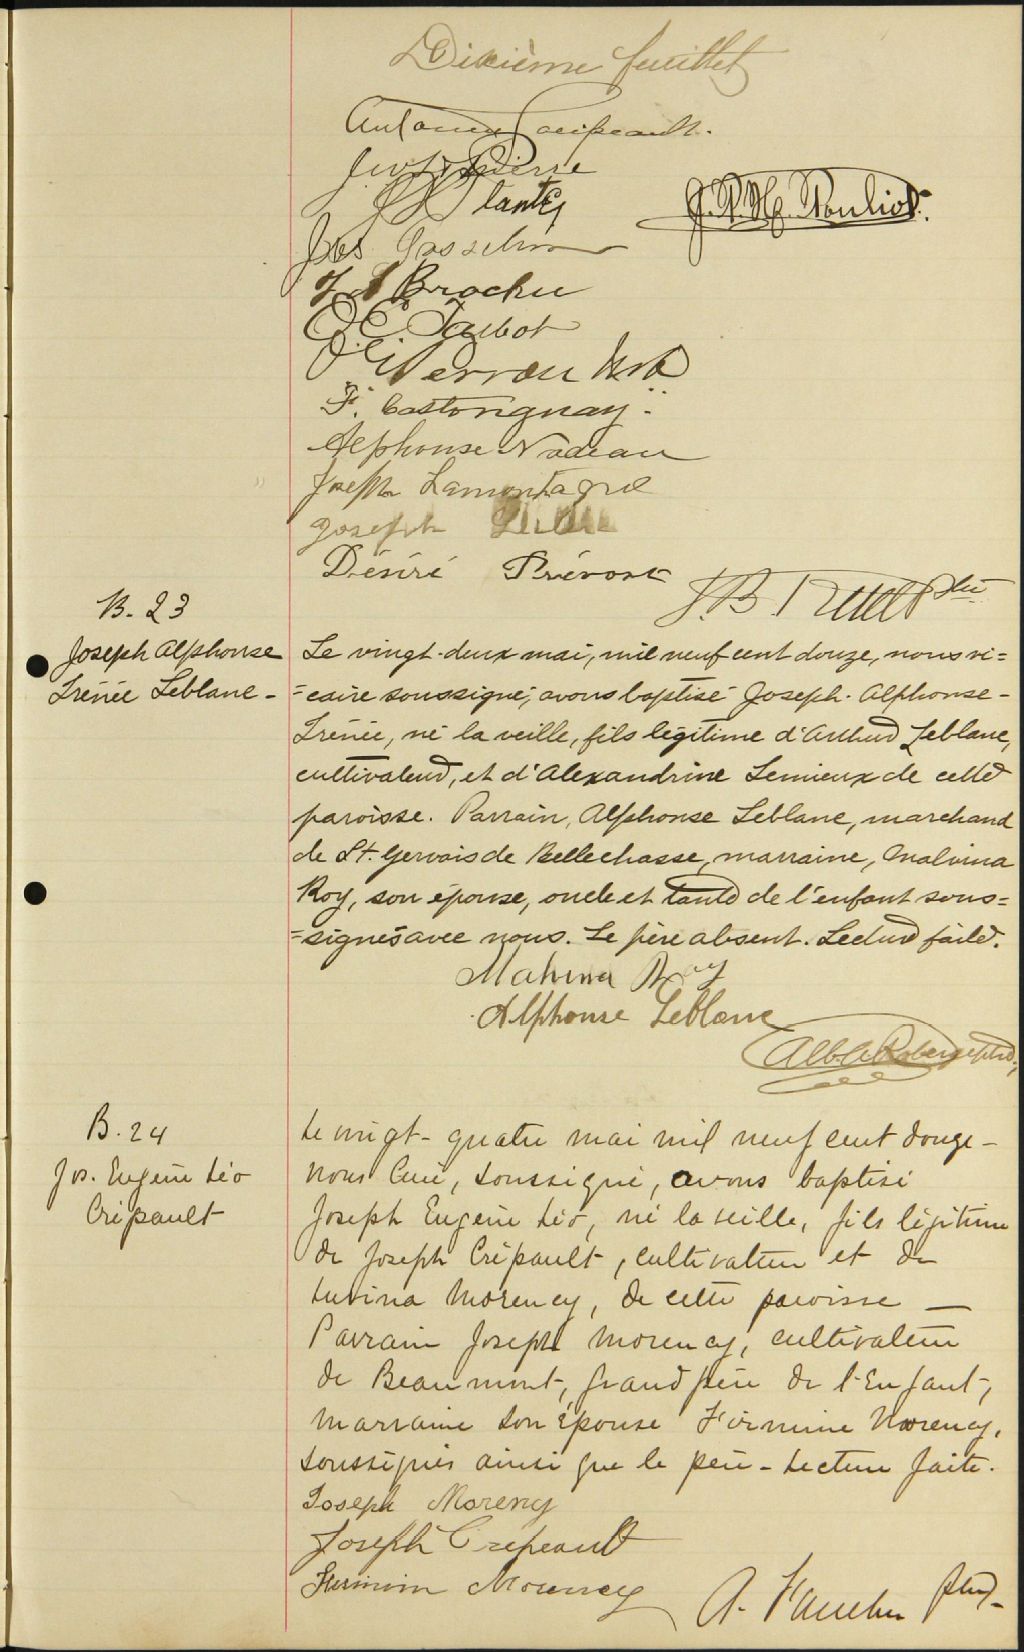 Dixième feuillet
Crépeault.
Pierre
Plante
J. N. Pouliot
Jos Gosselin
J A Brochu
O. E. Talbot
Perron
F. Castonguay.
Alphonse Nadeau
Joseph Lamontagne
Joseph
Désiré Prévost
J. B. Ruel Ptre
B. 23
Joseph Alphonse
Irénée Leblanc -
Le vingt-deux mai, mil neuf cent douze, nous vi=
=caire soussigné, avons baptisé Joseph-Alphonse-
Irénée, né la veille, fils légitime d'Arthur Leblanc,
cultivateur, et d'Alexandrine Lemieux de cette
paroisse. Parrain, Alphonse Leblanc, marchand
de St. Gervais de Bellechasse, marraine, Malvina
Roy, son épouse, oncle et tante de l'enfant sous=
=signés avec nous. Le père absent. Lecture faite.
Malvina Roy
Alphonse Leblanc
Alb. Roberge ptre,
B. 24
Jos. Eugène Léo
Crépault
Le vingt-quatre mai mil neuf cent douze -
nous Curé, soussigné, avons baptisé
Joseph Eugène Léo, né la veille, fils légitime
de Joseph Crépault, cultivateur et de
Luvina Morency, de cette paroisse —
Parrain Joseph Morency, cultivateur
de Beaumont, grand père de l'Enfant,
marraine son Épouse Firmine Morency,
soussignés ainsi que le père - Lecture faite.
Joseph Morency
Joseph Crepeault
Firminn Morency
A. Faucher ptre.